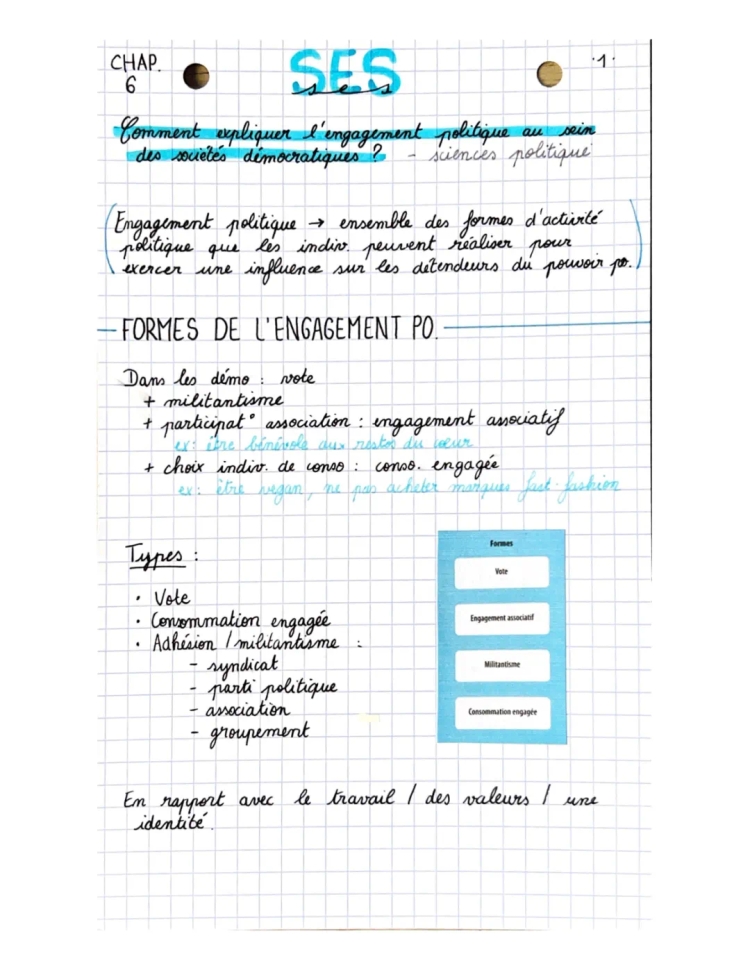 CHAP. 6
SES
ses
·1·
Comment expliquer l'engagement politique au sein
des sociétés démocratiques ? - sciences politique
Engagement politique → ensemble des formes d'activité
politique que les indiv. peuvent réaliser pour
exercer une influence sur les détendeurs du pouvoir po.
FORMES DE L'ENGAGEMENT PO.
Dans les démo : vote
+ militantisme
+ participat° association : engagement associatif
ex: être bénévole aux restos du cœur
+ choix indiv. de conso : conso. engagée
ex: être vegan, ne pas acheter marques fast-fashion
Types :
• Vote
• Consommation engagée
• Adhésion / militantisme :
- syndicat
- parti politique
- association
- groupement
Formes
Vote
Engagement associatif
Militantisme
Consommation engagée
En rapport avec le travail / des valeurs / une
identité.